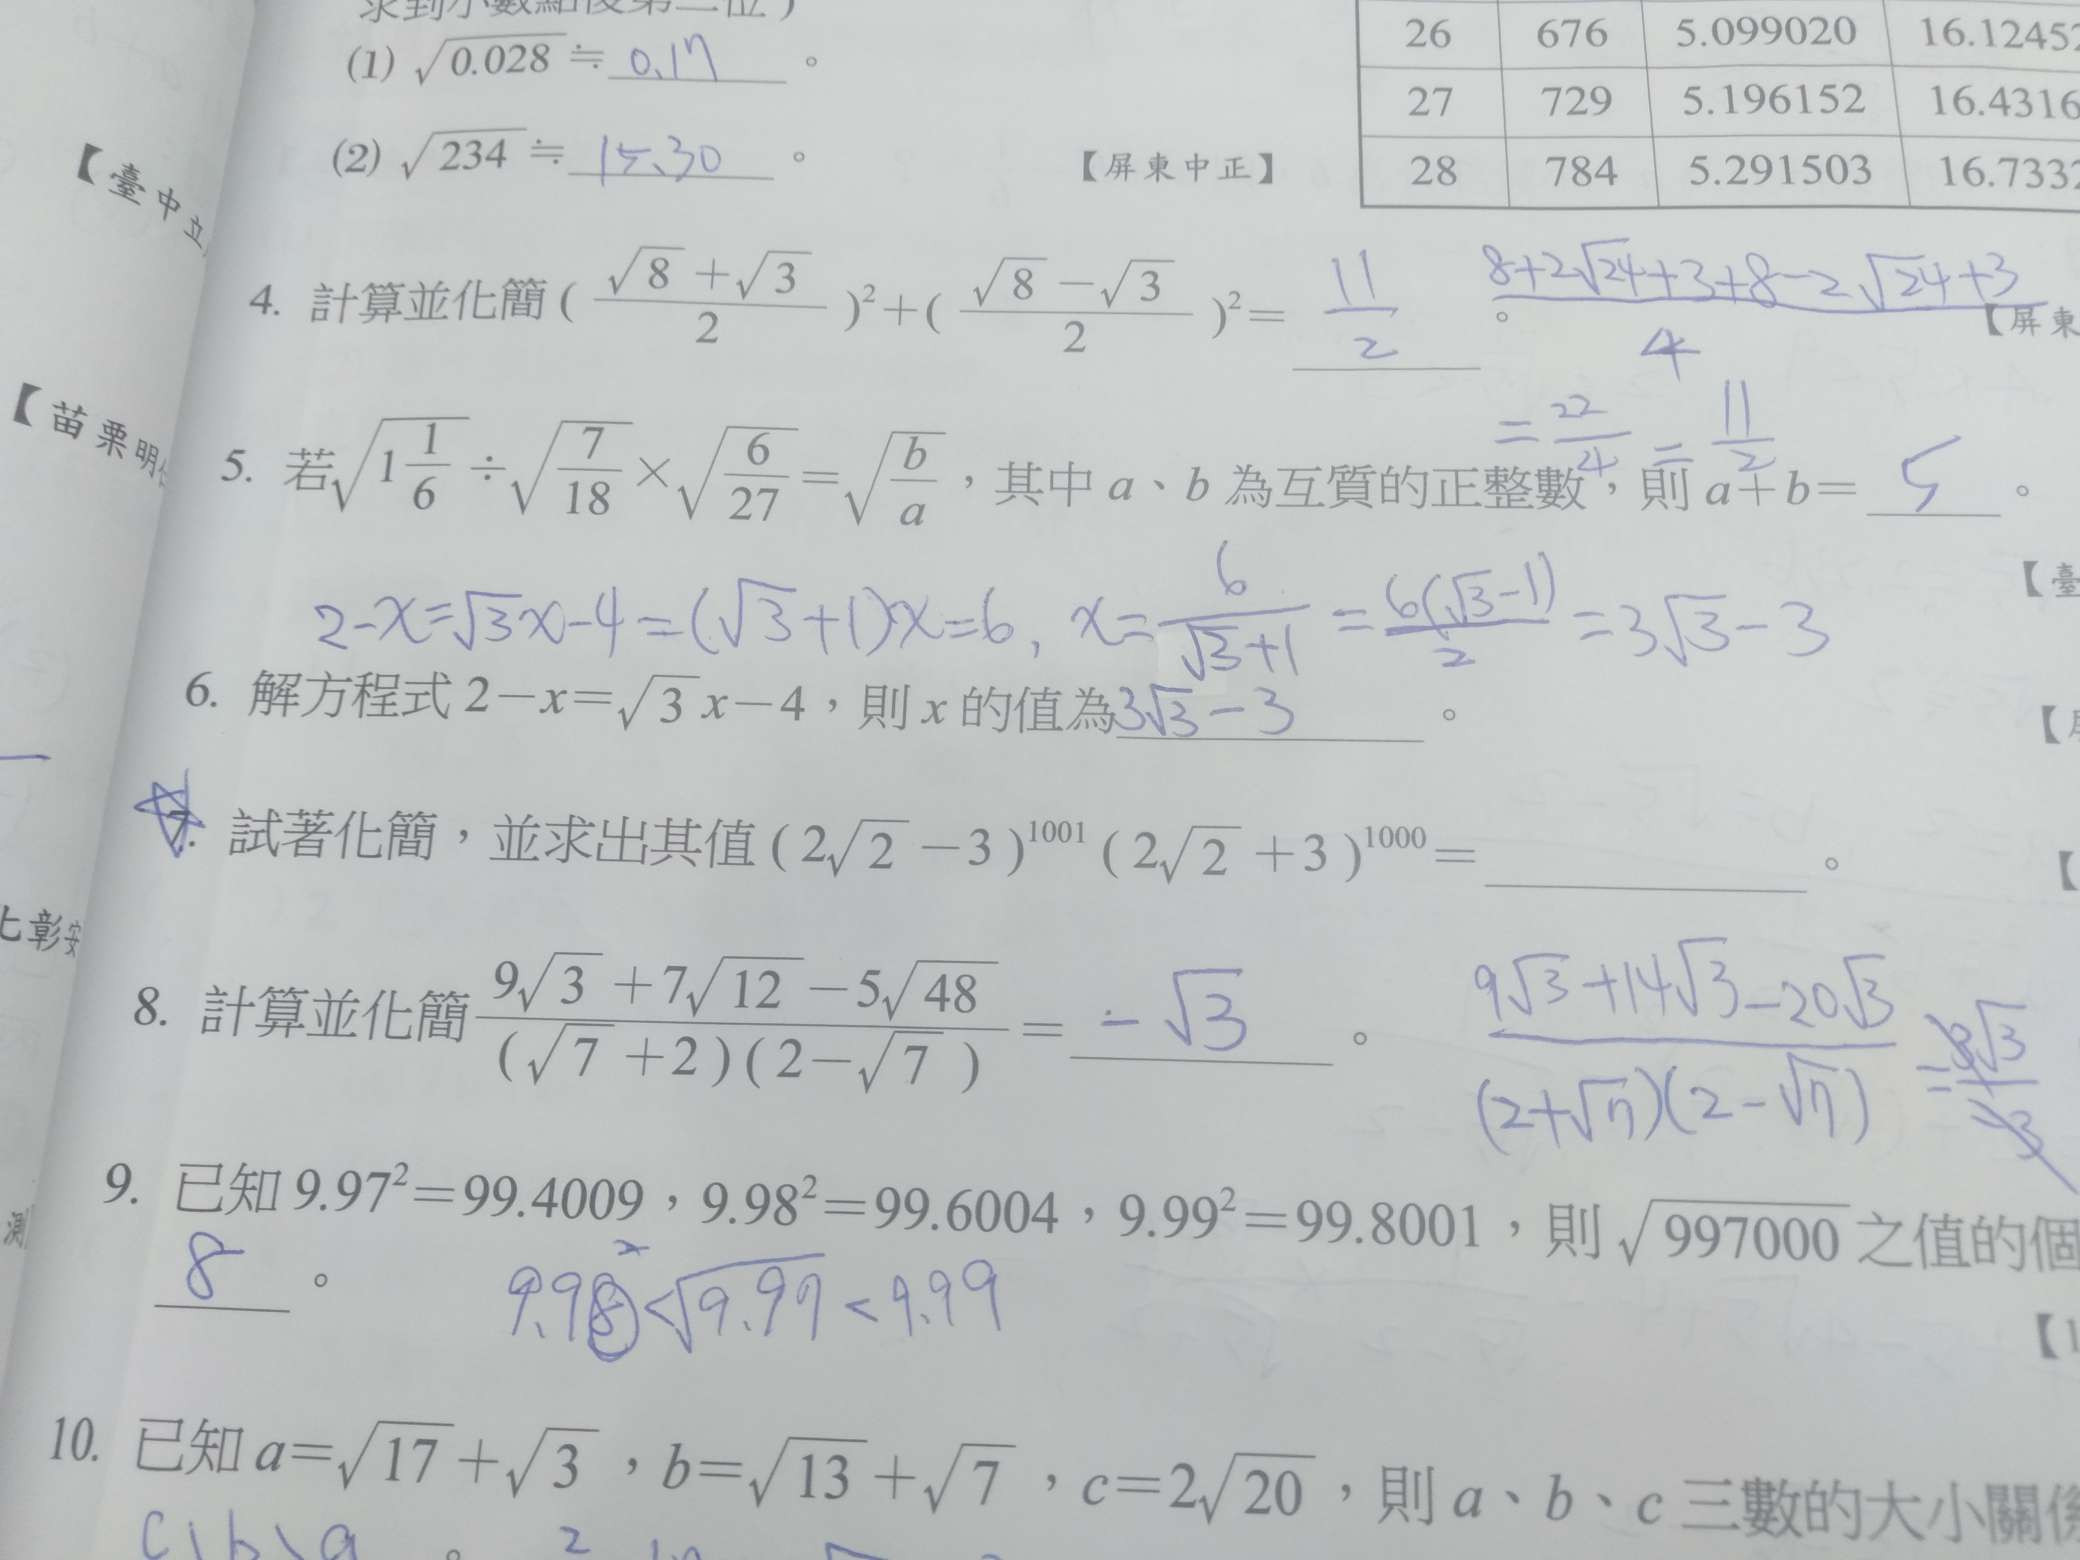 (1) √0.028 ≒ 0.17 。
(2) √234 ≒ 15.30 。
【屏東中正】
26 676 5.099020 16.12452
27 729 5.196152 16.4316
28 784 5.291503 16.7332
【臺中立
【苗栗明
4. 計算並化簡 ( (√8+√3)/2 )²+( (√8−√3)/2 )²= 11/2 。
(8+2√24+3+8−2√24+3)/4
= 22/4 = 11/2
【屏東
5. 若√(1 1/6)÷√(7/18)×√(6/27)=√(b/a),其中 a、b 為互質的正整數,則 a+b= 5 。
【臺
2-x=√3x-4=(√3+1)x=6, x=6/(√3+1)=6(√3-1)/2=3√3-3
6. 解方程式 2−x=√3x−4,則 x 的值為3√3-3 。
7. 試著化簡,並求出其值 (2√2−3)¹⁰⁰¹(2√2+3)¹⁰⁰⁰= 。
彰安
8. 計算並化簡 (9√3+7√12−5√48)/((√7+2)(2−√7)) = -√3 。
(9√3+14√3-20√3)/((2+√7)(2-√7)) = 3√3/-3
測
9. 已知 9.97²=99.4009,9.98²=99.6004,9.99²=99.8001,則√997000 之值的個
8 。
9.98<√9.97<9.99
【1
10. 已知 a=√17+√3,b=√13+√7,c=2√20,則 a、b、c 三數的大小關係